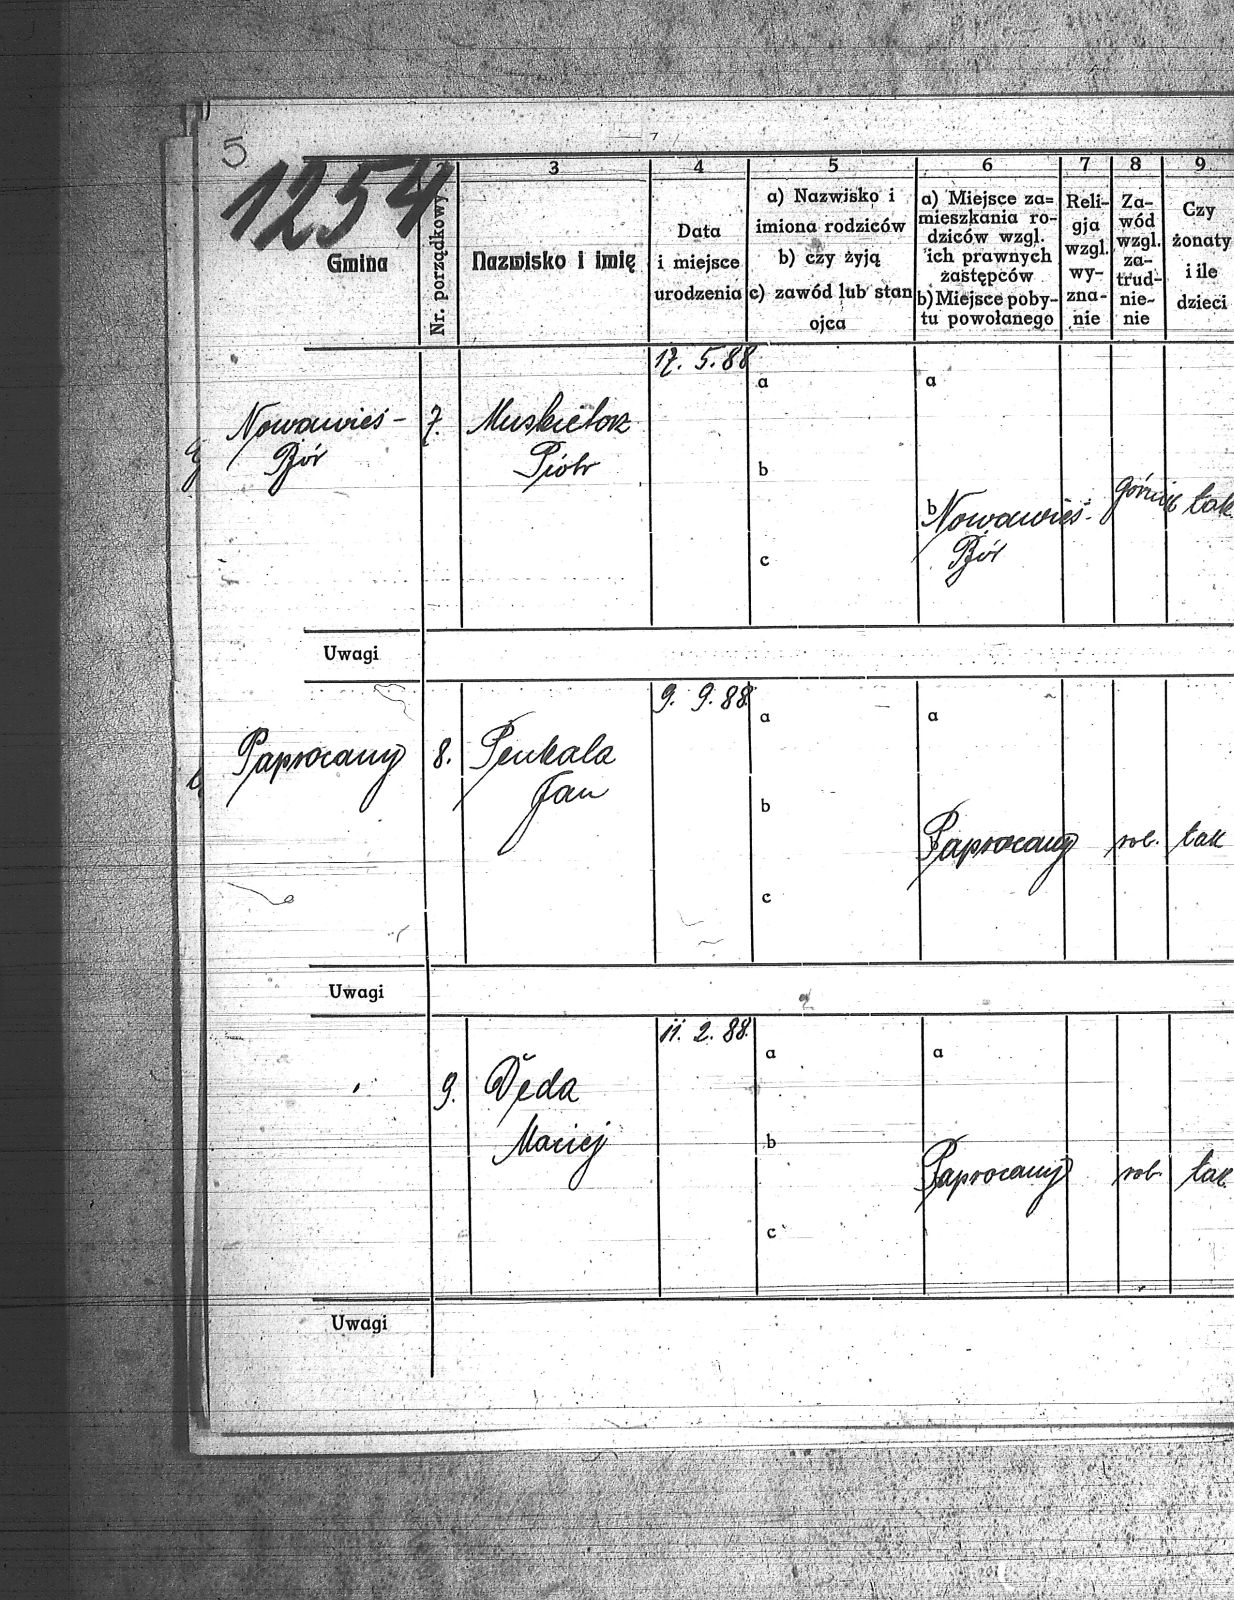 5
1254
3 4 5 6 7 8 9
Gmina
Nr. porządkowy
Nazwisko i imię
Data
i miejsce
urodzenia
a) Nazwisko i
imiona rodziców
b) czy żyją
c) zawód lub stan
ojca
a) Miejsce za=
mieszkania ro-
dziców wzgl.
ich prawnych
zastępców
b) Miejsce poby-
tu powołanego
Reli-
gja
wzgl.
wy-
zna-
nie
Za-
wód
wzgl.
za-
trud-
nie-
nie
Czy
żonaty
i ile
dzieci
17. 5. 88
a a
Nowawieś- 7. Muskietorz
Bór Piotr
b
b Nowawieś- górnik tak
Bór
c
Uwagi
9. 9. 88
a a
Paprocany 8. Penkala
Jan
b
Paprocany rob. tak
c
Uwagi
11. 2. 88.
a a
9. Dęda
Maciej
b
Paprocany rob. tak
c
Uwagi